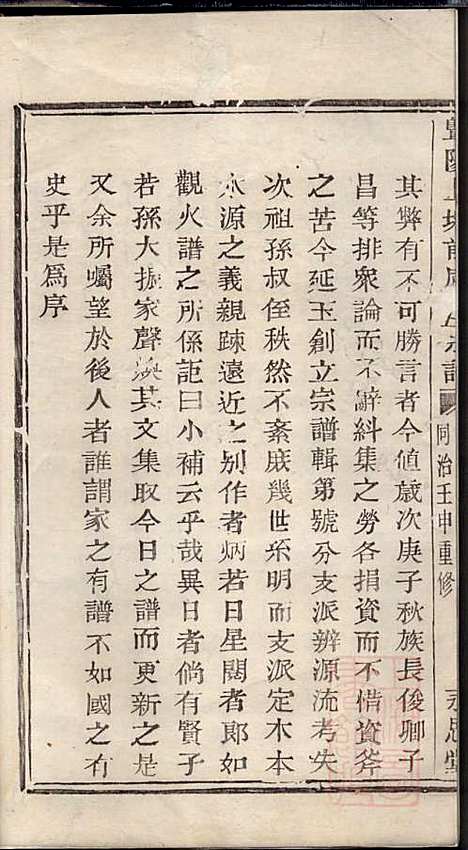 同治壬申重修
其弊有不可勝言者今値歲次庚子秋族長俊聊子
昌等排衆論而不辭糾集之勞各捐資而不惜資斧
之苦今延玉創立宗譜輯第號分支派辨源流考失
次祖孫叔侄秩然不紊庶幾世系明而支派定木本
水源之義親疎遠近之别作者炳若日星閱者郎如
觀火譜之所係詎曰小補云乎哉異日者倘有賢子
若孫大振家聲渙其文集取今日之譜而更新之是
又余所囑望於後人者誰謂家之有譜不如國之有
史乎是爲序